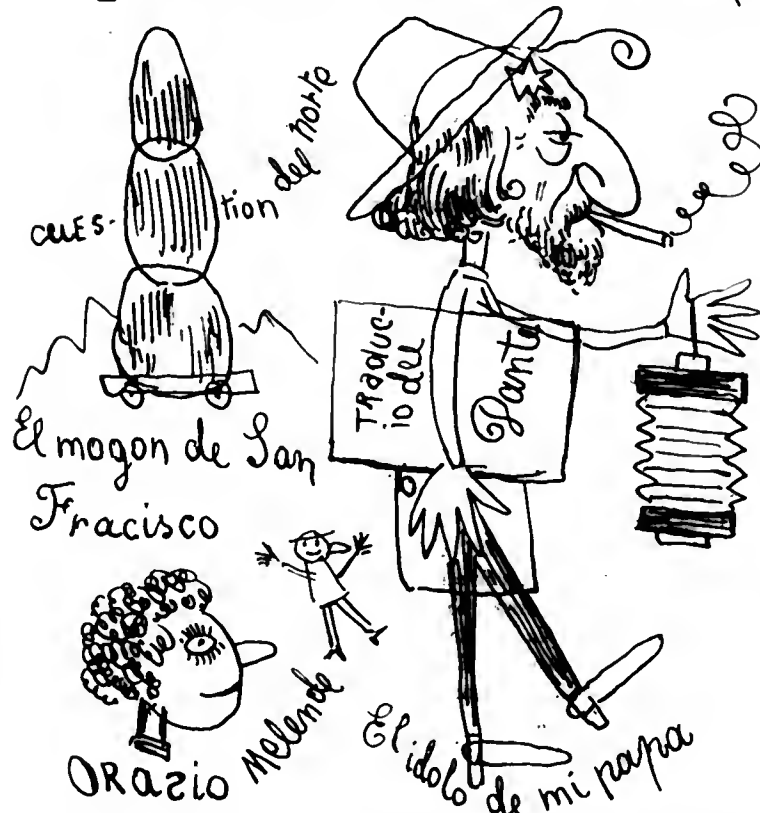 cuES-
tion del norte
El mogon de San
Fracisco
TRaduc-
io del
Dante
ORazio Melende
El idolo de mi papa